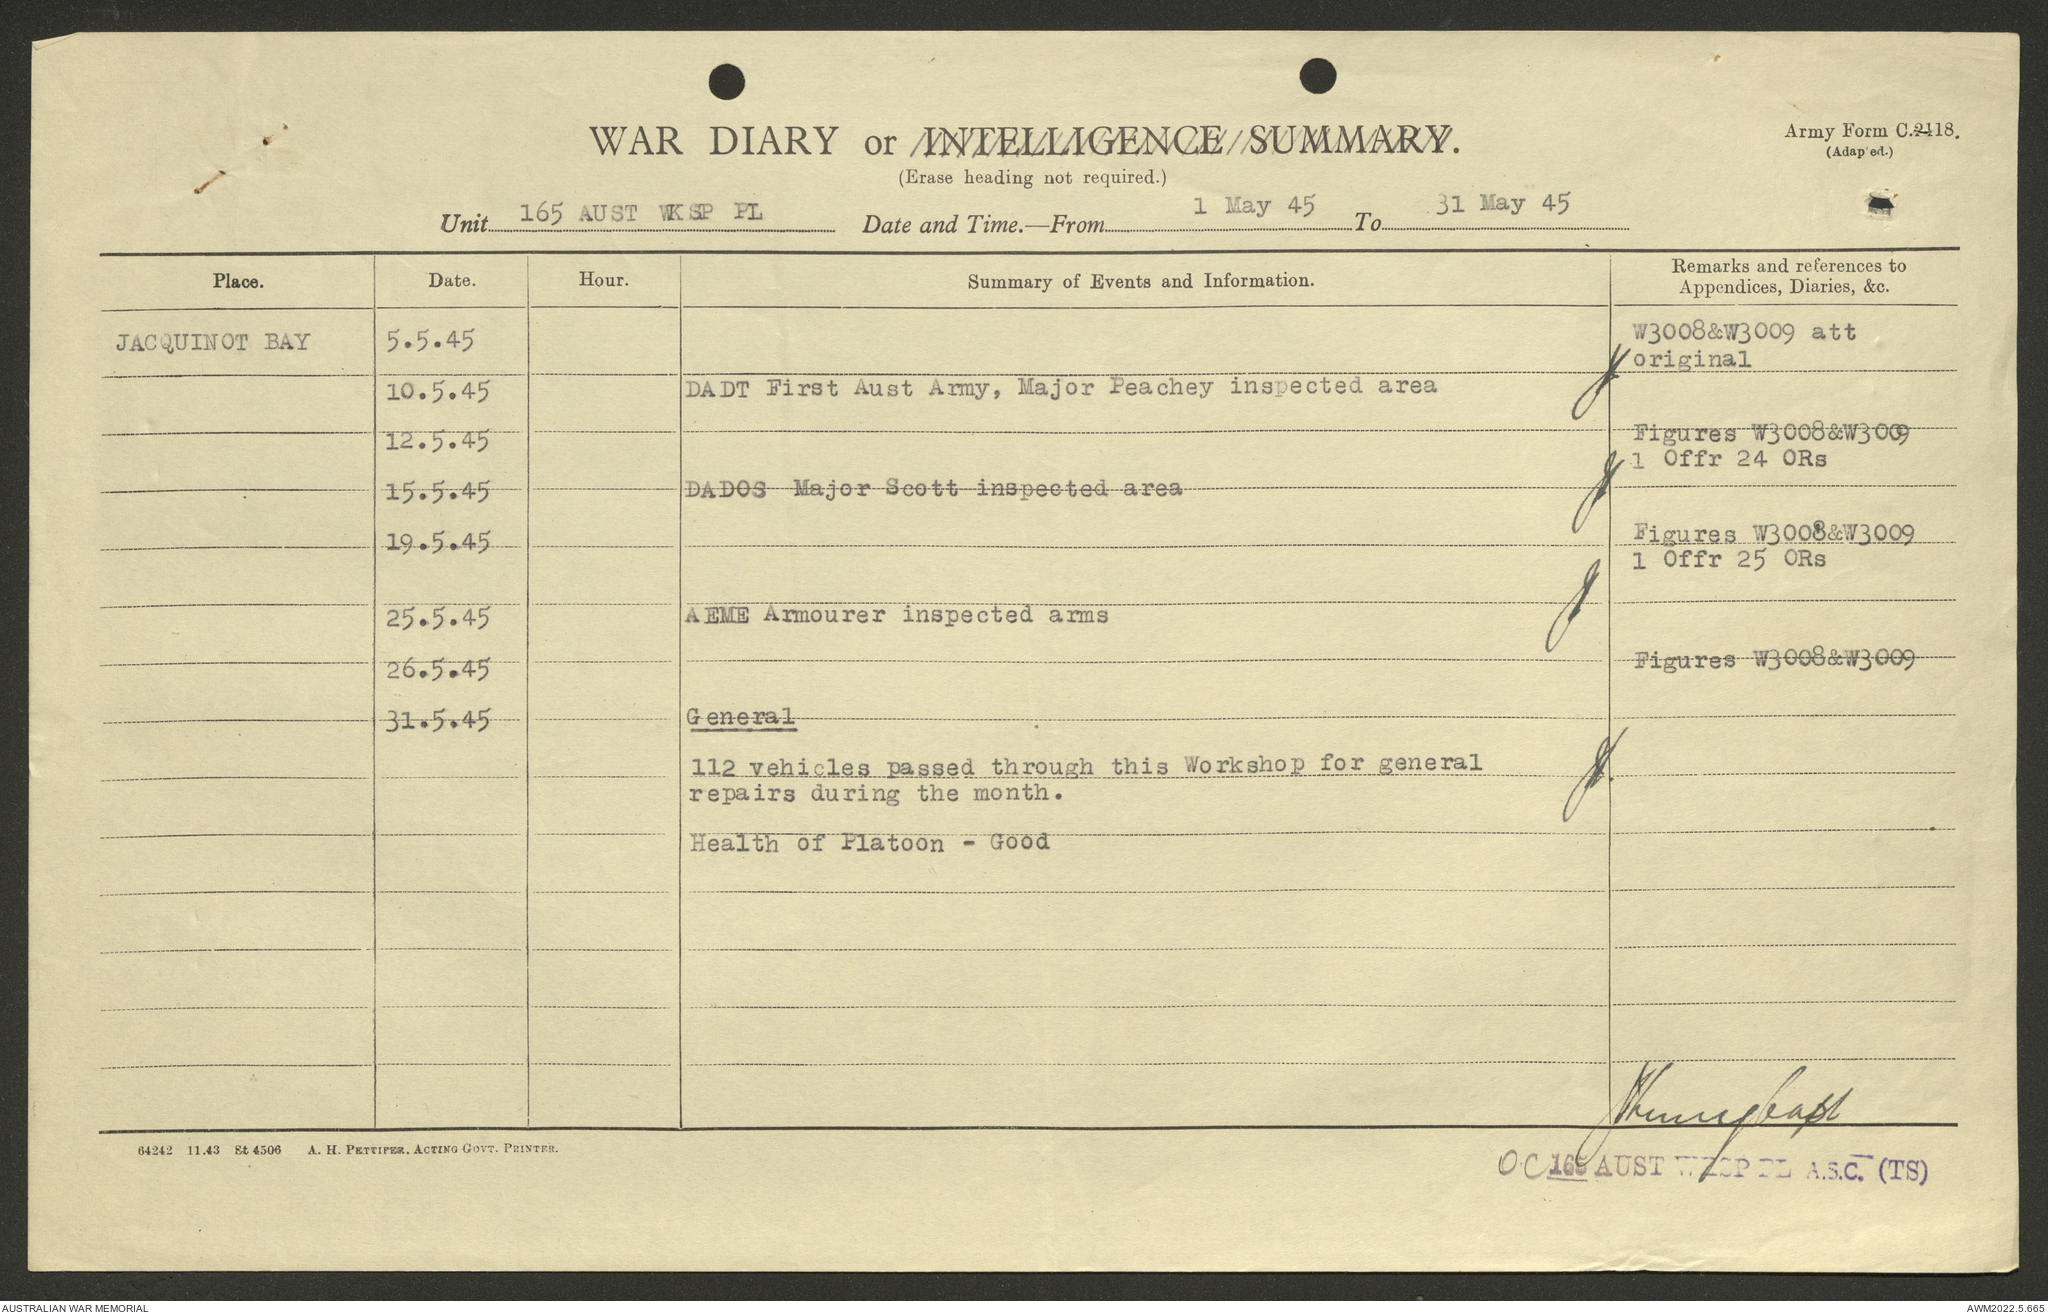 WAR DIARY or INTELLIGENCE SUMMARY.
(Erase heading not required.)
Army Form C.2118.
(Adapted.)
Unit 165 AUST WKSP PL Date and Time.—From 1 May 45 To 31 May 45
Place. Date. Hour. Summary of Events and Information. Remarks and references to
Appendices, Diaries, &c.
JACQUINOT BAY 5.5.45 W3008&W3009 att
original
10.5.45 DADT First Aust Army, Major Peachey inspected area
12.5.45 Figures W3008&W3009
1 Offr 24 ORs
15.5.45 DADOS Major Scott inspected area
19.5.45 Figures W3008&W3009
1 Offr 25 ORs
25.5.45 AEME Armourer inspected arms
26.5.45 Figures W3008&W3009
31.5.45 General
112 vehicles passed through this Workshop for general
repairs during the month.
Health of Platoon - Good
Capt
64242 11.43 St 4506 A. H. PETTIFER, ACTING GOVT. PRINTER.
OC 165 AUST WKSP PL A.S.C. (TS)
AUSTRALIAN WAR MEMORIAL
AWM2022.5.665